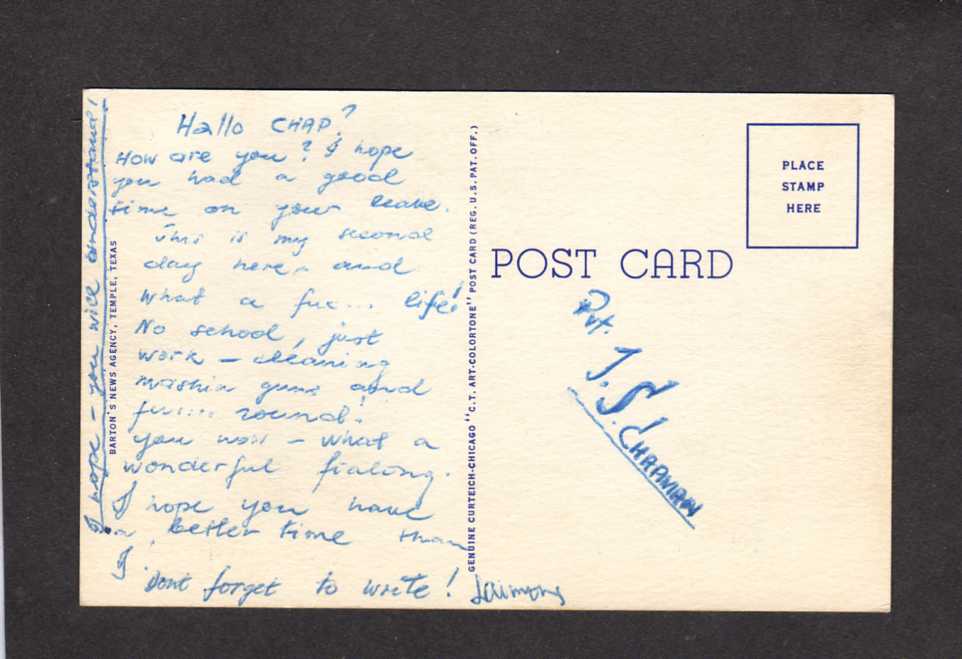 Hallo CHAP!
How are you? I hope
you had a good
time on your leave.
This is my second
day here, and
what a fuc... life!
No school, just
work – cleaning
mashin guns and
fu.... round!
you now – what a
wonderful
I hope you have
a better time than
I.
Dont forget to write!
I hope – you will understand!
BARTON'S NEWS AGENCY, TEMPLE, TEXAS
GENUINE CURTEICH-CHICAGO "C.T. ART-COLORTONE" POST CARD (REG. U.S. PAT. OFF.)
POST CARD
PLACE
STAMP
HERE
Pvt.
J. S. CHAPMAN